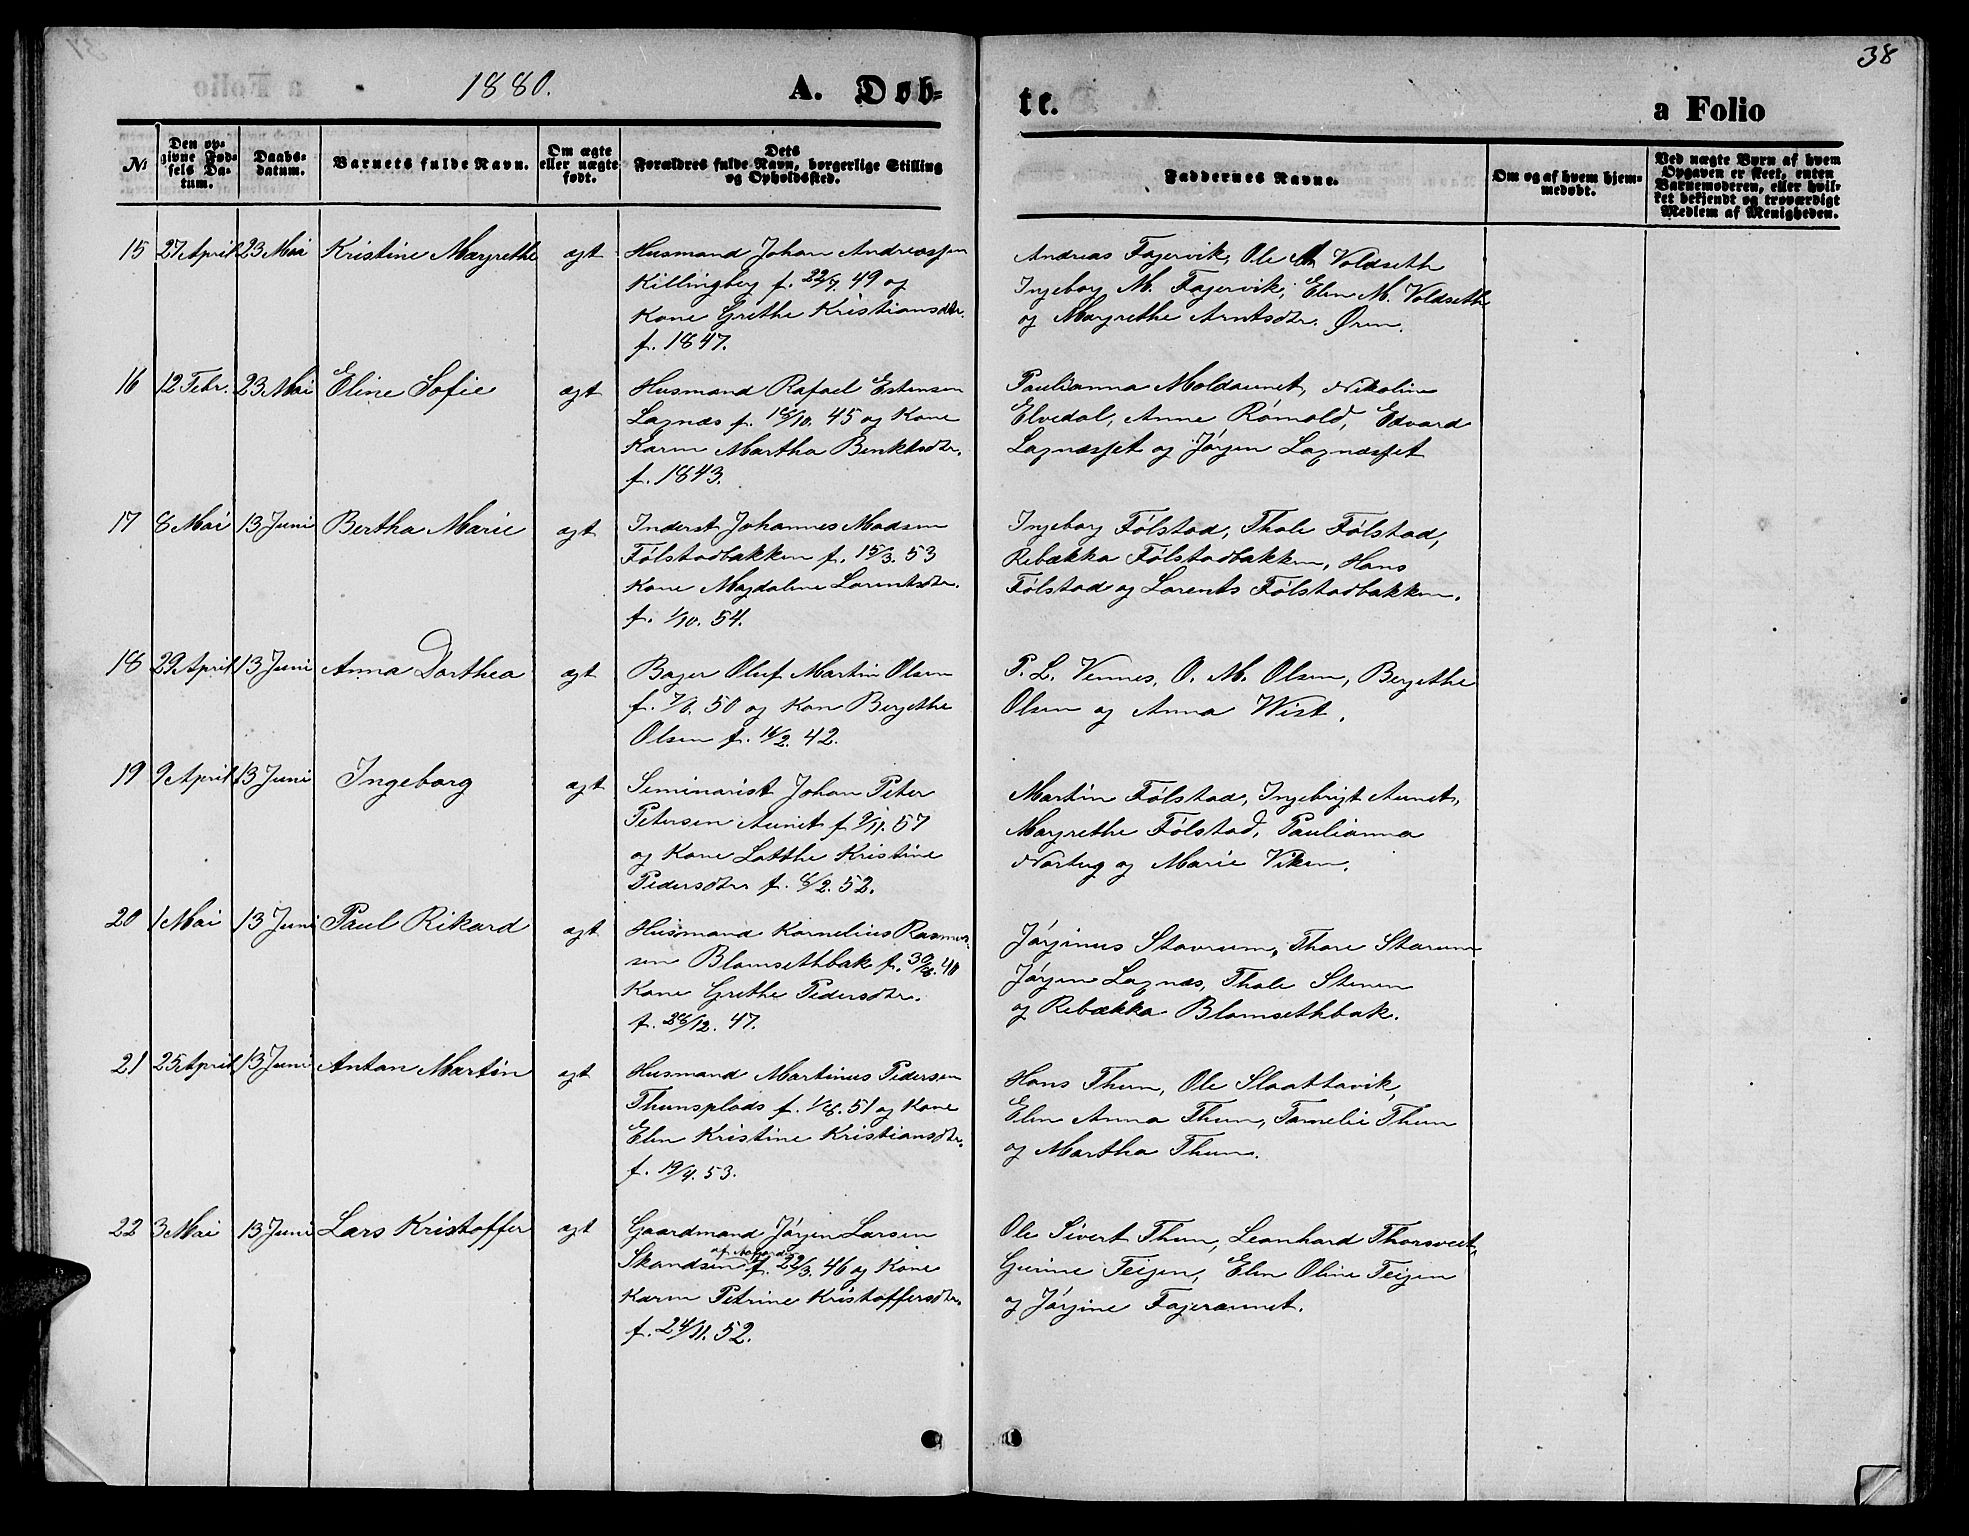 38
1880.
A. Døb-
te.
a Folio
№
Den op-
givne Fød-
sels Da-
tum.
Daabs-
datum.
Barnets fulde Navn.
Om ægte
eller uægte
født.
Dets
Forældres fulde Navn, borgerlige Stilling
og Opholdssted.
Faddernes Navne.
Om og af hvem hjem-
medøbt.
Ved uægte Børn af hvem
Opgaven er skeet, enten
Barnemoderen, eller hvil-
ket bekjendt og troværdigt
Medlem af Menigheden.
15 27 April 23 Mai Kristine Margrethe ægt Husmand Johan Andreassen
Killingberg f. 22/7. 49 og
Kone Grethe Kristiansdtr.
f. 1847.
Andreas Fagervik, Ole Voldseth
Ingeborg M. Fagervik, Elen M. Voldseth
og Margrethe Arntsdtr. Øren.
16 12 Febr. 23 Mai Eline Sofie ægt Husmand Rafael Estensen
Lagnæs f. 18/10. 45 og Kone
Karen Martha Benktsdtr.
f. 1843.
Paulianna Moldaunet, Nikoline
Elvedal, Anne Römold, Edvard
Lagnæsset og Jörgen Lagnæsset
17 8 Mai 13 Juni Bertha Marie ægt Inderst Johannes Madsen
Fölstadbakken f. 15/3. 53
Kone Magdaline Larentsdtr.
f. 1/10. 54.
Ingeborg Fölstad, Thale Fölstad,
Rebækka Fölstadbakken, Hans
Fölstad og Larents Fölstadbakken.
18 29 April 13 Juni Anna Dorthea ægt Bager Oluf Martin Olsen
f. 7/8. 50 og Kone Bergithe
Olsen f. 16/2. 42.
P. L. Vennes, O. M. Olsen, Bergithe
Olsen og Anna Wist.
19 9 April 13 Juni Ingeborg ægt Seminarist Johan Peter
Petersen Aunet f. 9/11. 57
og Kone Lotthe Kristine
Pedersdtr f. 8/2. 52.
Martin Fölstad, Ingebrigt Aunet,
Margrethe Fölstad, Paulianna
Nortug og Marie Viken.
20 1 Mai 13 Juni Paul Rikard ægt Husmand Kornelius Rasmus-
sen Blomsethbak f. 40
Kone Grethe Pedersdtr.
f. 28/12. 47.
Jörginus Stavrum, Thore Starum
Jörgen Lagnæs, Thale Stenen
og Rebækka Blomsethbak.
21 25 April 13 Juni Anton Martin ægt Husmand Martinus Pedersen
Thunsplads f. 1/8. 51 og Kone
Elen Kristine Kristiansdtr.
f. 19/4. 53.
Hans Thun, Ole Slaattavik,
Elen Anna Thun, Tamelie Thun
og Martha Thun.
22 3 Mai 13 Juni Lars Kristoffer ægt Gaardmand Jörgen Larsen
Skandsen f. 22/3. 46 og Kone
Karen Petrine Kristoffersdtr.
f. 24/11. 52.
Ole Sivert Thun, Leonhard Thorsvedt,
Gurine Teigen, Elen Oline Teigen
og Jörgine Fageraunet.